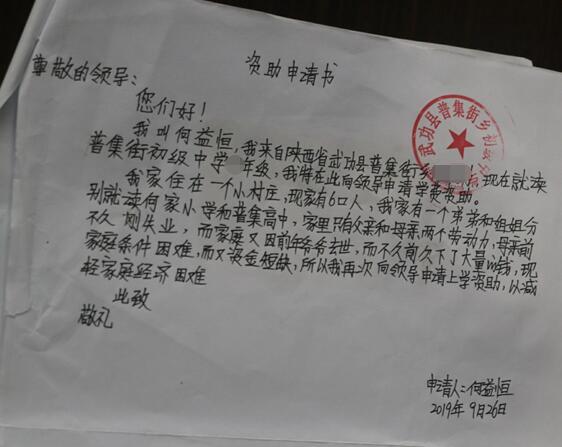 资助申请书
尊敬的领导：
您们好！
我叫何益恒，我来自陕西省武功县普集街 现在就读
普集街初级中学 年级，我特在此向领导申请学费资助。
我家住在一个小村庄，现家有6口人，我家有一个弟弟和姐姐分
别就读何家小学和普集高中，家里只有父亲和母亲两个劳动力，母亲前
不久刚失业，而家庭又因前年爷爷去世，而不久前欠下了大量的钱，现
家庭条件困难，而又资金短缺，所以我再次向领导申请上学资助，以减
轻家庭经济困难
此致
敬礼
申请人：何益恒
2019年9月26日
武功县普集街乡